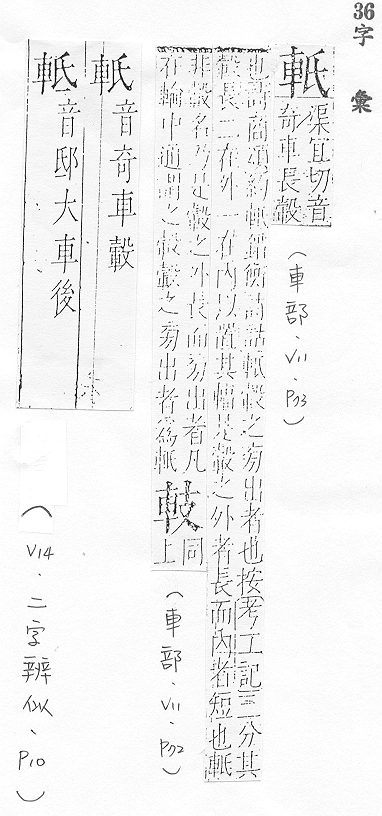 36字彙
軝 渠宜切音
奇車長轂
(車部、V11、P73)
也詩商頌約軝錯衡詩詁軝轂之旁出者也按考工記三分其
轂長二在外一在内以置其輻是轂之外者長而内者短也軝
非轂名乃是轂之外長而旁出者凡
在輪中通謂之轂轂之旁出者為軝 𨋢 同
上
(車部、V11、P72)
軝 音奇車轂
軧 音邸大車後
(V14、二字辨似、P10)